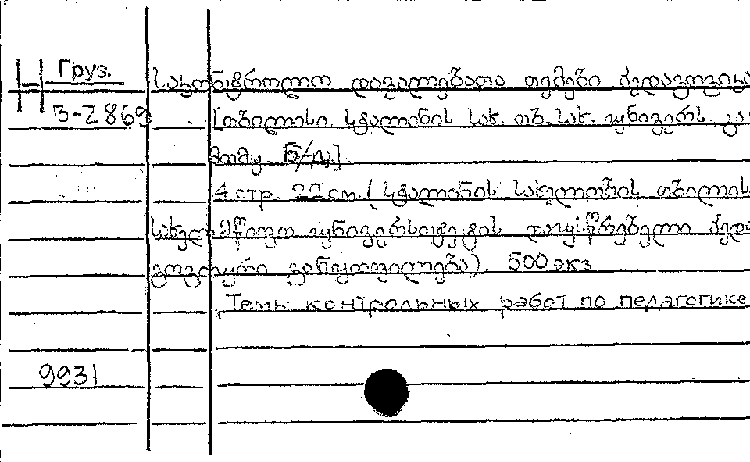 Н Груз.
3-2869
საკონტროლო დავალებათა თემები პედაგოგიკა
[თბილისი, სტალინის სახ. თბ. სახ. უნივერს. გა
მომც. Б/д].
4 стр. 22 см. (სტალინის სახელობის თბილის
სახელმწიფო უნივერსიტეტის დაუსწრებელი პედა
გოგიური განყოფილება). 500 экз
Темы контрольных работ по педагогике
9931